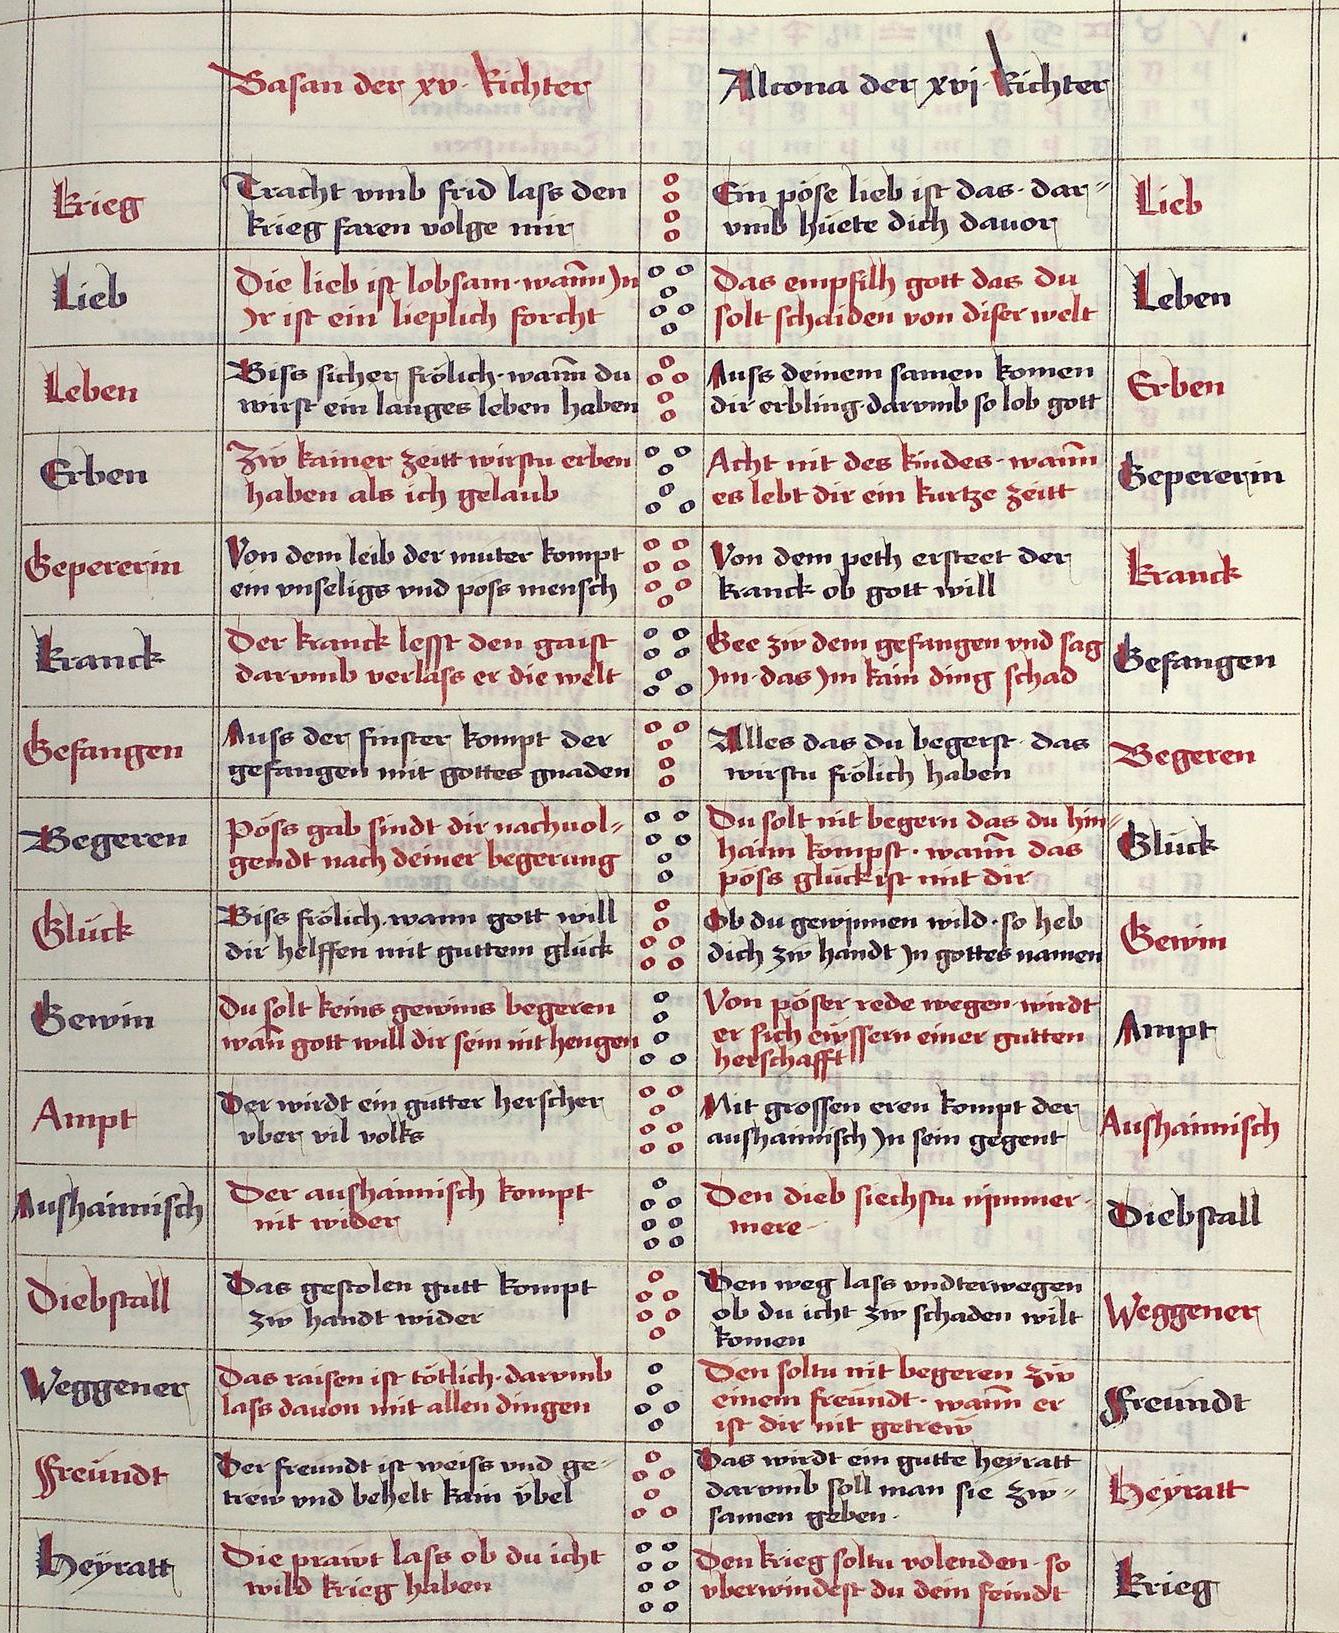 Basan der xv. Richter
Alcona der xvj Richter
Krieg
Tracht vmb frid lass den
krieg faren volge mir
Ein pöse lieb ist das. dar=
vmb hüete dich dauor
Lieb
Lieb
Die lieb ist lobsam. wann Jn
Jr ist ein lieplich forcht
Das empfilh gott das du
solt schaiden von diser welt
Leben
Leben
Biss sicher frölich. wann du
wirst ein langes leben haben
Auss deinem samen komen
dir erbling. darvmb so lob gott
Erben
Erben
Zw kainer zeitt wirstu erben
haben als ich gelaub
Acht nit des kindes. wann
es lebt dir ein kurtze zeitt
Gepererin
Gepererin
Von dem leib der muter kompt
ein vnseligs vnd pöss mensch
Von dem peth ersteet der
kranck ob gott will
Kranck
Kranck
Der kranck lesst den gaist
darvmb verlass er die welt
Gee zw dem gefangen vnd sag
Jm. das Jm kain ding schad
Gefangen
Gefangen
Auss der finster kompt der
gefangen mit gottes gnaden
Alles das du begerst. das
wirstu frölich haben
Begeren
Begeren
Pöss gab sindt dir nachuol=
gendt nach deiner begerung
Du solt nit begern das du hin=
hann kompst. wann das
pöss glück ist mit dir
Glück
Glück
Biss frölich. wann gott will
dir helffen mit guttem glück
Ob du gewinnen wild. so heb
dich zw handt Jn gottes namen
Gewin
Gewin
Du solt keins gewins begeren
wañ gott will dir sein nit hengen
Von pöser rede wegen wirdt
er sich eẅssern einer gutten
herschafft
Ampt
Ampt
Der wirdt ein gutter herscher
vber vil volks
Mit grossen eren kompt der
aushaimisch Jn sein gegent
Aushaimisch
Aushaimisch
Der aushaimisch kompt
nit wider
Den dieb siechstu nimmer=
mere
Diebstall
Diebstall
Das gestolen gutt kompt
zw handt wider
Den weg lass vndterwegen
ob du icht zw schaden wilt
komen
Weggener
Weggener
Das raisen ist tötlich. darvmb
lass dauon mit allen dingen
Den soltu nit begeren zw
einem freundt. wann er
ist dir nit getrew
Freundt
Freundt
Der freundt ist weiss vnd ge=
trew vnd behelt kain übel
Das wirdt ein gutte heyratt
darvmb soll man sie zw=
samen geben.
Heyratt
Heyratt
Die prawt lass ob du icht
wild krieg haben
Den krieg soltu volenden. so
vberwindest du dein feindt
Krieg